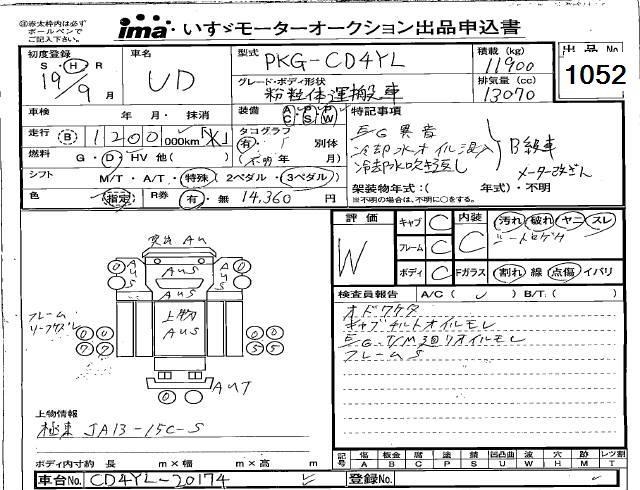 ◎赤太枠内は必ず
ボールペンで
ご記入下さい。
ima いすゞモーターオークション出品申込書
初度登録
S・H・R
19/9月
車名
UD
型式
PKG-CD4YL
グレード・ボディ形状
粉粒体運搬車
積載(kg)
11900
排気量(cc)
13070
出品No
1052
車検 年 月・抹消
装備 A/C P/S P/W
特記事項
走行 B 1200 000km「メ」
タコグラフ
有・ 別体
(不明年 月)
燃料 G・D・HV 他( )
シフト M/T・A/T・特殊(2ペダル・3ペダル)
色 指定 R券 有・無 14,360 円
E/G異音
冷却水オイル混入
冷却水吹き返し
B級車
メーター改ざん
架装物年式:( 年式)・不明
※不明の場合は、不明に○をする。
評価
W
キャブ C
フレーム C
ボディ C
内装 C
Fガラス
汚れ・破れ・ヤニ・スレ
割れ・線・点傷・イバリ
検査員報告 A/C( ✓ ) B/T.( )
オドワケタ
キャブチルトオイルモレ
E/G、T/M廻りオイルモレ
フレームS
AUS
AUS
AUS
AUS
上物
AUS
フレーム
0 0
7 7
0 0
5 5
AUT
上物情報
極東 JA13-15C-S
ボディ内寸約 長 m×幅 m×高 m
記号 傷A 凹B 腐C 塗P 錆S 凹凸曲U 波W 穴H 跡M レンズ割T
車台No. CD4YL-20174 ✓
登録No.